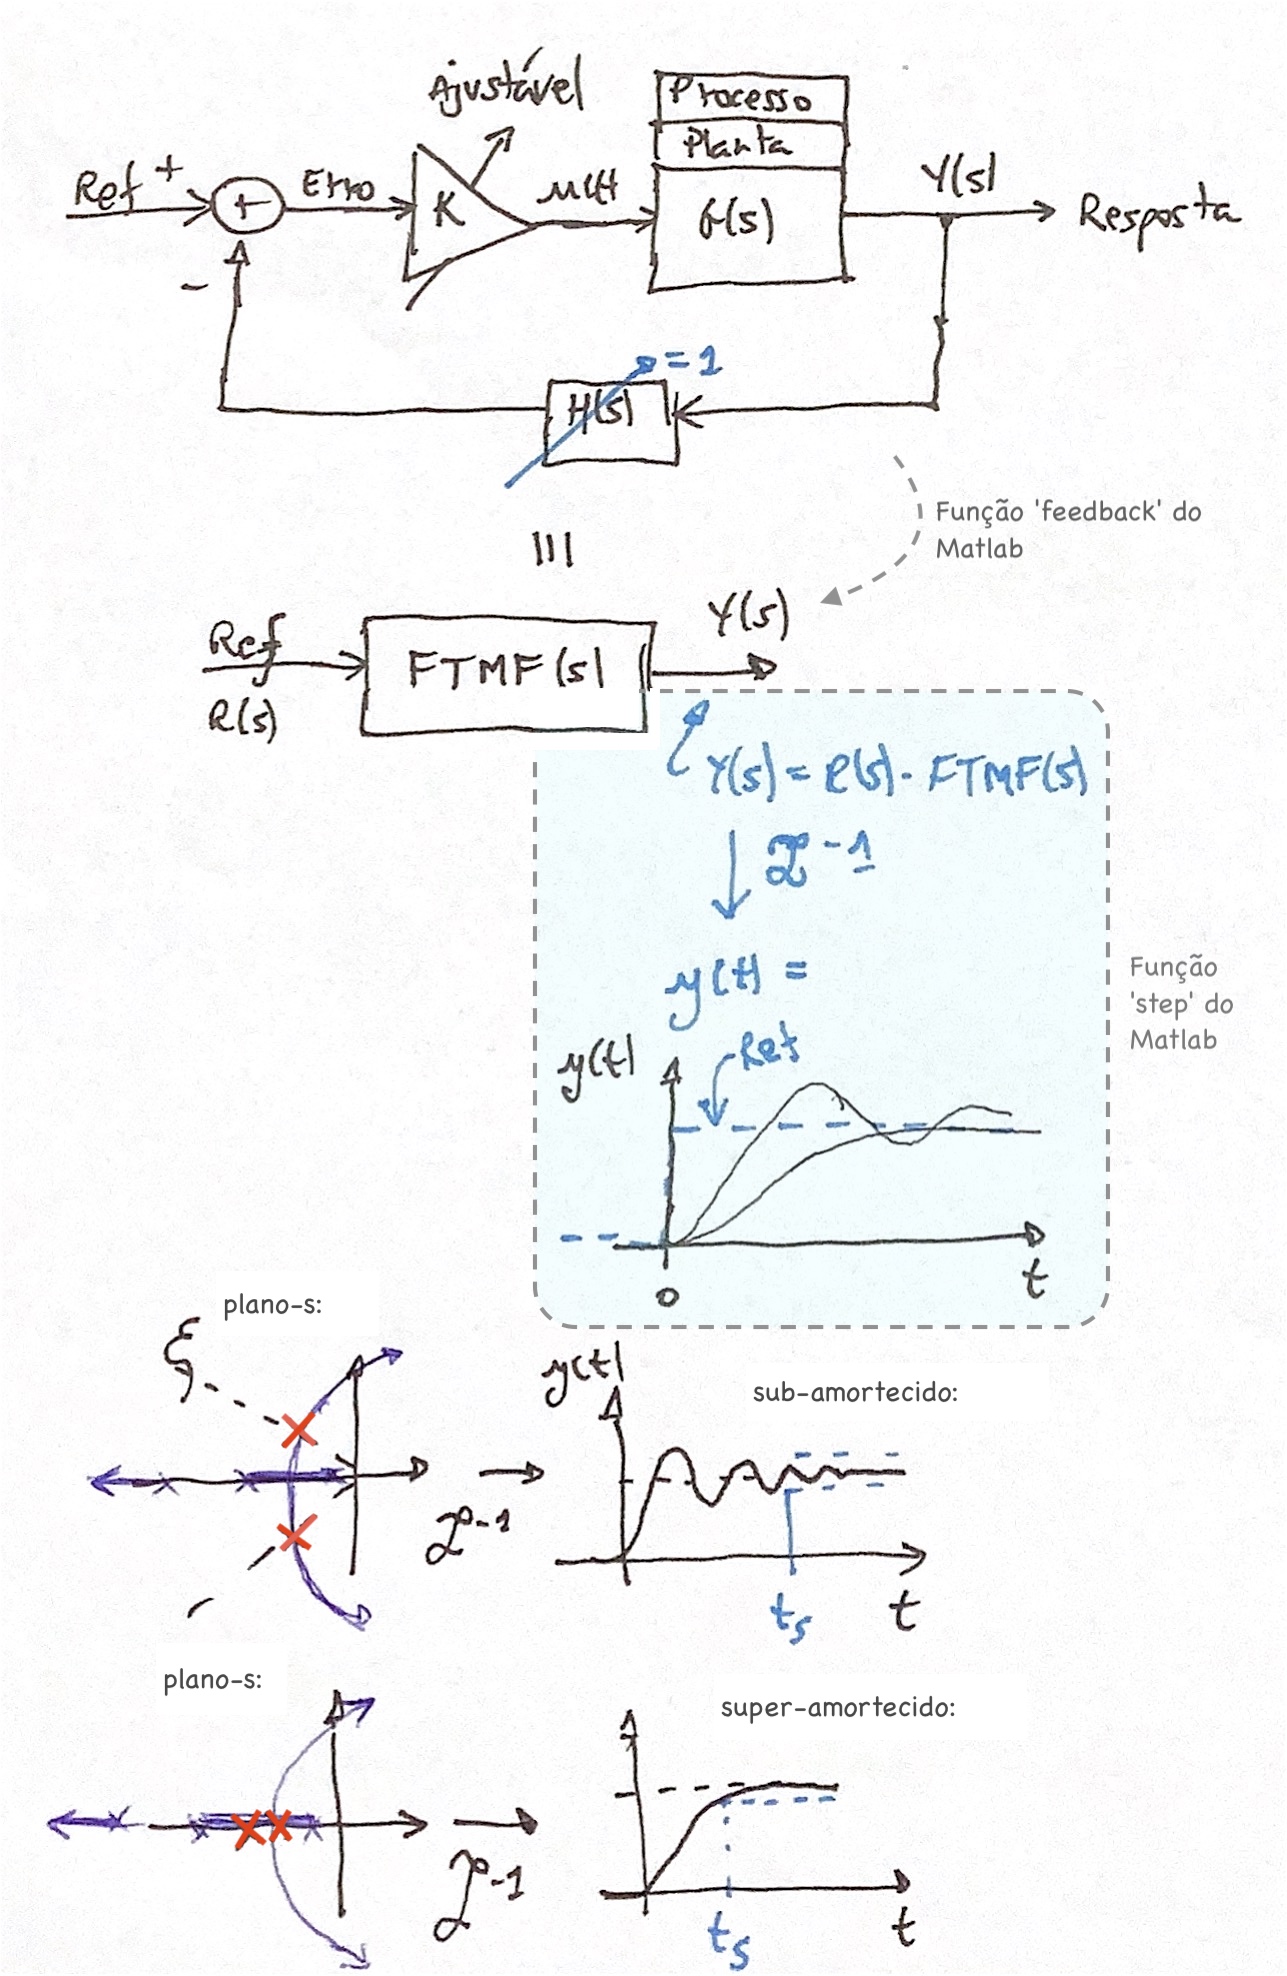 Ajustável
Processo
Planta
Ref + + Erro K u(t) G(s) Y(s) Resposta
-
= 1
H(s)
Função 'feedback' do
Matlab
Ref
R(s)
FTMF(s)
Y(s)
Y(s) = R(s) · FTMF(s)
ℒ-1
y(t) =
Função
'step' do
Matlab
y(t)
Ref
0
t
plano-s:
ξ
ℒ-1
y(t)
sub-amortecido:
ts
t
plano-s:
ℒ-1
super-amortecido:
ts
t